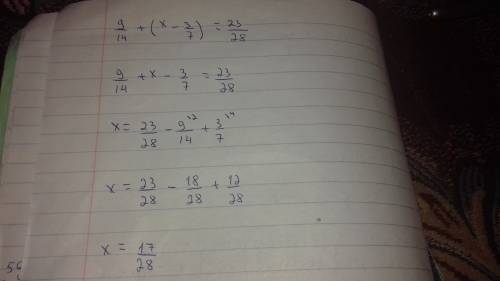 9/14 + (x - 3/7) = 23/28
9/14 + x - 3/7 = 23/28
x = 23/28 - 9^{\2}/14 + 3^{\4}/7
x = 23/28 - 18/28 + 12/28
x = 17/28